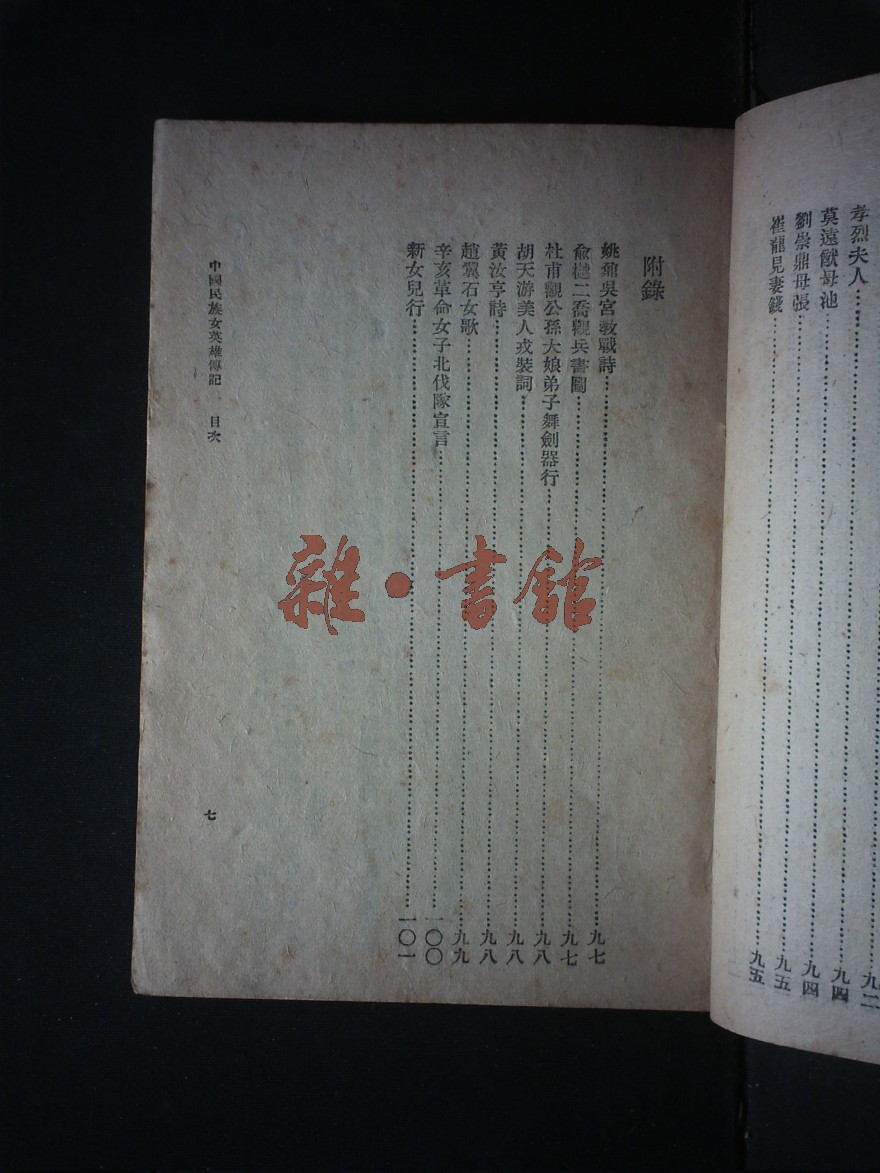 九二
孝烈夫人……九四
莫遠猷母池……九四
劉崇鼎母張……九五
崔龍見妻錢……九五
附錄
姚鼐吳宮敎戰詩……九七
兪樾二喬觀兵書圖……九七
杜甫觀公孫大娘弟子舞劍器行……九八
胡天游美人戎裝詞……九八
黃汝亨詩……九八
趙翼石女歌……九九
辛亥革命女子北伐隊宣言……一〇〇
新女兒行……一〇一
中國民族女英雄傳記 目次
七
雜·書館